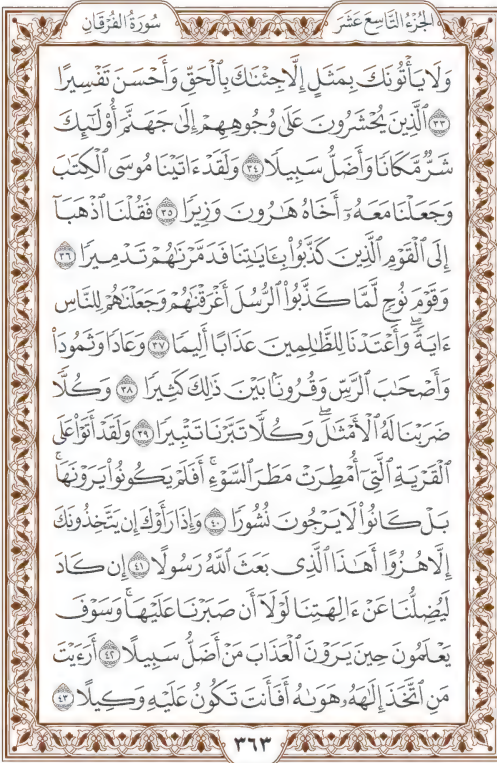 الجُزْءُ التَّاسِعَ عَشَرَ
سُورَةُ الفُرْقَانِ
وَلَا يَأْتُونَكَ بِمَثَلٍ إِلَّا جِئْنَٰكَ بِٱلْحَقِّ وَأَحْسَنَ تَفْسِيرًا
٣٣ ٱلَّذِينَ يُحْشَرُونَ عَلَىٰ وُجُوهِهِمْ إِلَىٰ جَهَنَّمَ أُو۟لَٰٓئِكَ
شَرٌّ مَّكَانًا وَأَضَلُّ سَبِيلًا ٣٤ وَلَقَدْ ءَاتَيْنَا مُوسَى ٱلْكِتَٰبَ
وَجَعَلْنَا مَعَهُۥٓ أَخَاهُ هَٰرُونَ وَزِيرًا ٣٥ فَقُلْنَا ٱذْهَبَآ
إِلَى ٱلْقَوْمِ ٱلَّذِينَ كَذَّبُوا۟ بِـَٔايَٰتِنَا فَدَمَّرْنَٰهُمْ تَدْمِيرًا ٣٦
وَقَوْمَ نُوحٍ لَّمَّا كَذَّبُوا۟ ٱلرُّسُلَ أَغْرَقْنَٰهُمْ وَجَعَلْنَٰهُمْ لِلنَّاسِ
ءَايَةً ۖ وَأَعْتَدْنَا لِلظَّٰلِمِينَ عَذَابًا أَلِيمًا ٣٧ وَعَادًا وَثَمُودَا۟
وَأَصْحَٰبَ ٱلرَّسِّ وَقُرُونًۢا بَيْنَ ذَٰلِكَ كَثِيرًا ٣٨ وَكُلًّا
ضَرَبْنَا لَهُ ٱلْأَمْثَٰلَ ۖ وَكُلًّا تَبَّرْنَا تَتْبِيرًا ٣٩ وَلَقَدْ أَتَوْا۟ عَلَى
ٱلْقَرْيَةِ ٱلَّتِىٓ أُمْطِرَتْ مَطَرَ ٱلسَّوْءِ ۚ أَفَلَمْ يَكُونُوا۟ يَرَوْنَهَا ۚ
بَلْ كَانُوا۟ لَا يَرْجُونَ نُشُورًا ٤٠ وَإِذَا رَأَوْكَ إِن يَتَّخِذُونَكَ
إِلَّا هُزُوًا أَهَٰذَا ٱلَّذِى بَعَثَ ٱللَّهُ رَسُولًا ٤١ إِن كَادَ
لَيُضِلُّنَا عَنْ ءَالِهَتِنَا لَوْلَآ أَن صَبَرْنَا عَلَيْهَا ۚ وَسَوْفَ
يَعْلَمُونَ حِينَ يَرَوْنَ ٱلْعَذَابَ مَنْ أَضَلُّ سَبِيلًا ٤٢ أَرَءَيْتَ
مَنِ ٱتَّخَذَ إِلَٰهَهُۥ هَوَىٰهُ أَفَأَنتَ تَكُونُ عَلَيْهِ وَكِيلًا ٤٣
٣٦٣